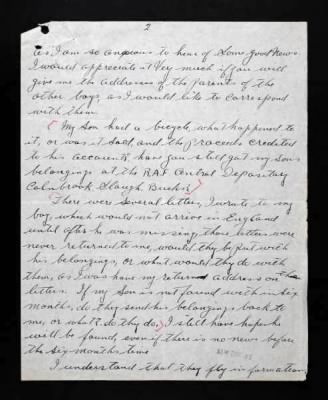 2
as I am so anxious to hear of some good news
I would appreciate it very much if you will
give me the addresses of the parents of the
other boys, as I would like to correspond
with them.
(My son had a bicycle, what happened to
it, or was it sold, and the proceeds credited
to his account, have you still got my sons
belongings at the RAF Central Depositary
Colnbrook Slough, Bucks.)
(There were several letters I wrote to my
boy, which would not arrive in England
until after he was missing, those letters were
never returned to me, would they be put with
his belongings, or what would they do with
them, as I was have my return address on the
letters. If my son is not found with in six
months, do they send his belongings back to
me, or what do they do.) I still have hopes he
will be found, even if there is no news before
the six months time
I understand that they fly in formation